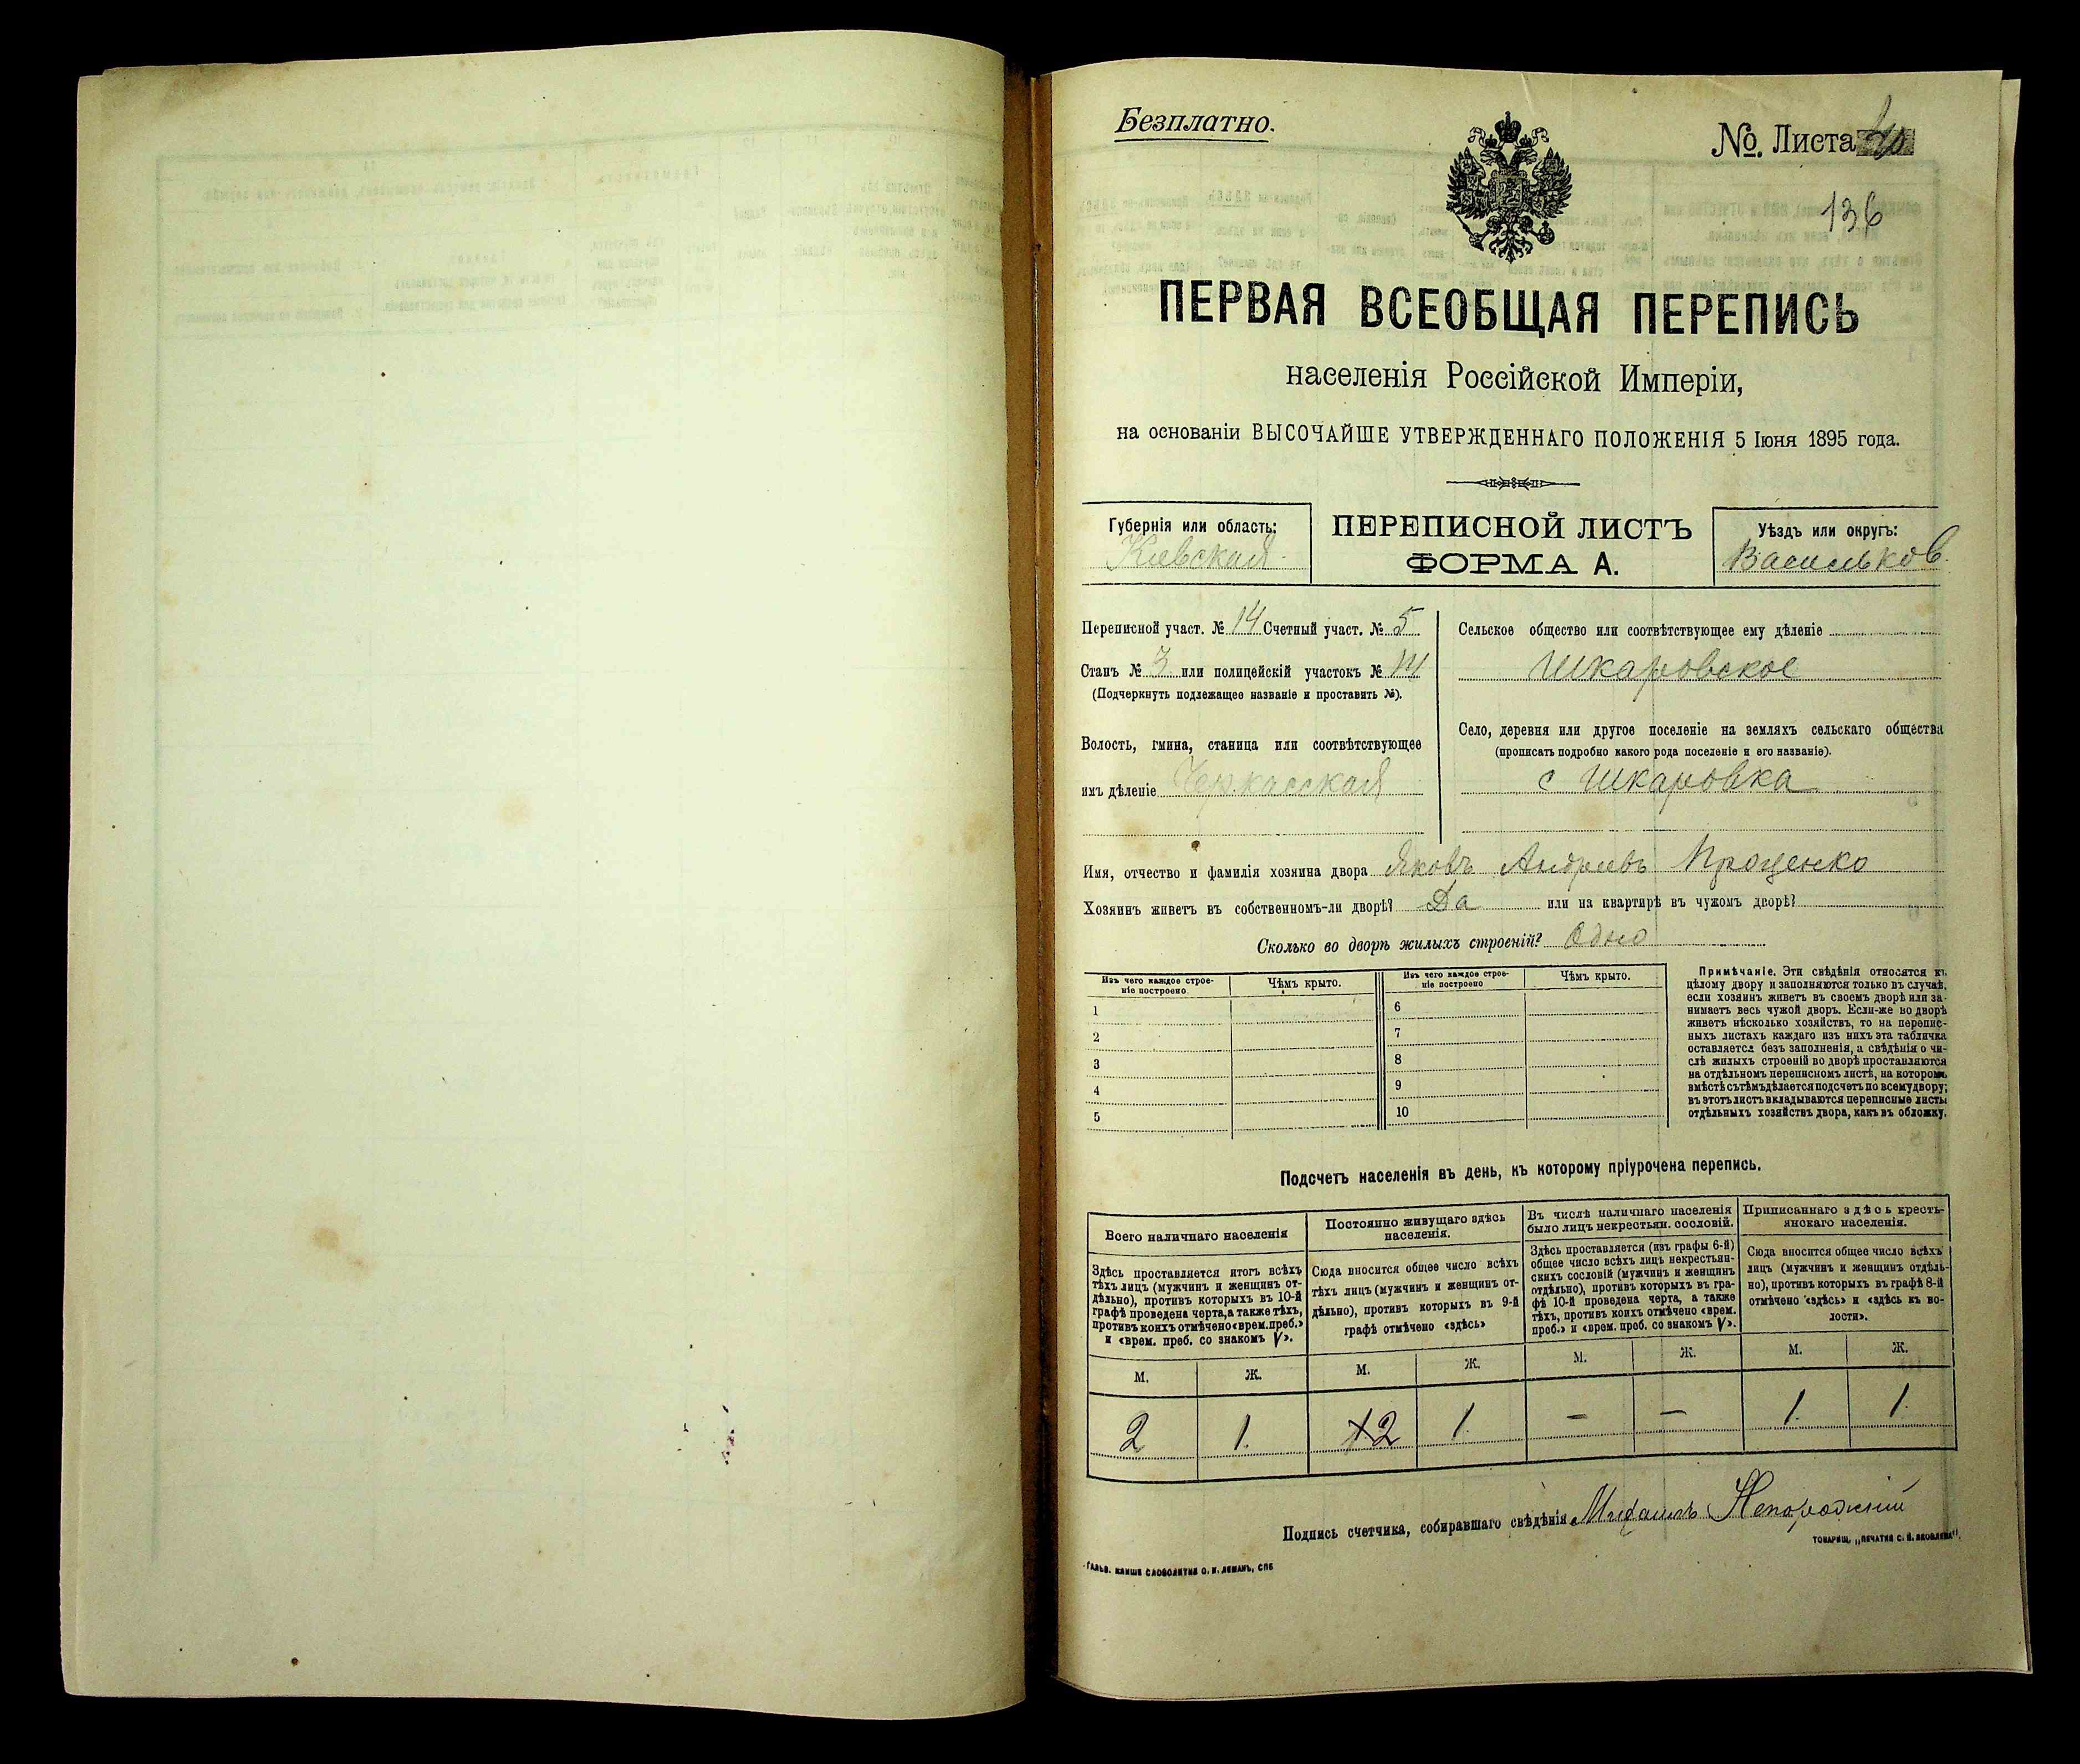 Безплатно.
№. Листа
136
ПЕРВАЯ ВСЕОБЩАЯ ПЕРЕПИСЬ
населенія Россійской Имперіи,
на основаніи ВЫСОЧАЙШЕ УТВЕРЖДЕННАГО ПОЛОЖЕНІЯ 5 Іюня 1895 года.
Губернія или область:
Кіевская
ПЕРЕПИСНОЙ ЛИСТЪ
ФОРМА А.
Уѣздъ или округъ:
Васильков.
Переписной участ. № 14 Счетный участ. № 5
Станъ № 3 или полицейскій участокъ № 14
(Подчеркнуть подлежащее названіе и проставить №).
Волость, гмина, станица или соотвѣтствующее
имъ дѣленіе Черкасская
Сельское общество или соотвѣтствующее ему дѣленіе
Шкаровское
Село, деревня или другое поселеніе на земляхъ сельскаго общества
(прописать подробно какого рода поселеніе и его названіе).
с Шкаровка
Имя, отчество и фамилія хозяина двора Яковъ Андреевъ Проценко
Хозяинъ живетъ въ собственномъ-ли дворѣ? Да или на квартирѣ въ чужомъ дворѣ?
Сколько во дворѣ жилыхъ строеній? Одно
Изъ чего каждое строе-
ніе построено
Чѣмъ крыто.
Изъ чего каждое строе-
ніе построено
Чѣмъ крыто.
1
2
3
4
5
6
7
8
9
10
Примѣчаніе. Эти свѣдѣнія относятся къ
цѣлому двору и заполняются только въ случаѣ,
если хозяинъ живетъ въ своемъ дворѣ или за-
нимаетъ весь чужой дворъ. Если-же во дворѣ
живетъ нѣсколько хозяйствъ, то на перепис-
ныхъ листахъ каждаго изъ нихъ эта табличка
оставляется безъ заполненія, а свѣдѣнія о чи-
слѣ жилыхъ строеній во дворѣ проставляются
на отдѣльномъ переписномъ листѣ, на которомъ
вмѣстѣ съ тѣмъ дѣлается подсчетъ по всему двору;
въ этотъ листъ вкладываются переписные листы
отдѣльныхъ хозяйствъ двора, какъ въ обложку.
Подсчетъ населенія въ день, къ которому пріурочена перепись.
Всего наличнаго населенія
Здѣсь проставляется итогъ всѣхъ
тѣхъ лицъ (мужчинъ и женщинъ от-
дѣльно), противъ которыхъ въ 10-й
графѣ проведена черта, а также тѣхъ,
противъ коихъ отмѣчено «врем. преб.»
и «врем. преб. со знакомъ V».
Постоянно живущаго здѣсь
населенія.
Сюда вносится общее число всѣхъ
тѣхъ лицъ (мужчинъ и женщинъ от-
дѣльно), противъ которыхъ въ 9-й
графѣ отмѣчено «здѣсь»
Въ числѣ наличнаго населенія
было лицъ некрестьян. сословій.
Здѣсь проставляется (изъ графы 6-й)
общее число всѣхъ лицъ некрестьян-
скихъ сословій (мужчинъ и женщинъ
отдѣльно), противъ которыхъ въ гра-
фѣ 10-й проведена черта, а также
тѣхъ, противъ коихъ отмѣчено «врем.
преб.» и «врем. преб. со знакомъ V».
Приписаннаго здѣсь кресть-
янскаго населенія.
Сюда вносится общее число всѣхъ
лицъ (мужчинъ и женщинъ отдѣль-
но), противъ которыхъ въ графѣ 8-й
отмѣчено «здѣсь» и «здѣсь къ во-
лости».
М. Ж. М. Ж. М. Ж. М. Ж.
2 1. 2 1. — — 1. 1.
Подпись счетчика, собиравшаго свѣдѣнія Михаилъ
ТОВАРИЩ. „ПЕЧАТНЯ С. П. ЯКОВЛЕВА“.
ГАЛЬВ. КЛИШЕ СЛОВОЛИТНИ О. И. ЛЕМАНЪ, СПБ